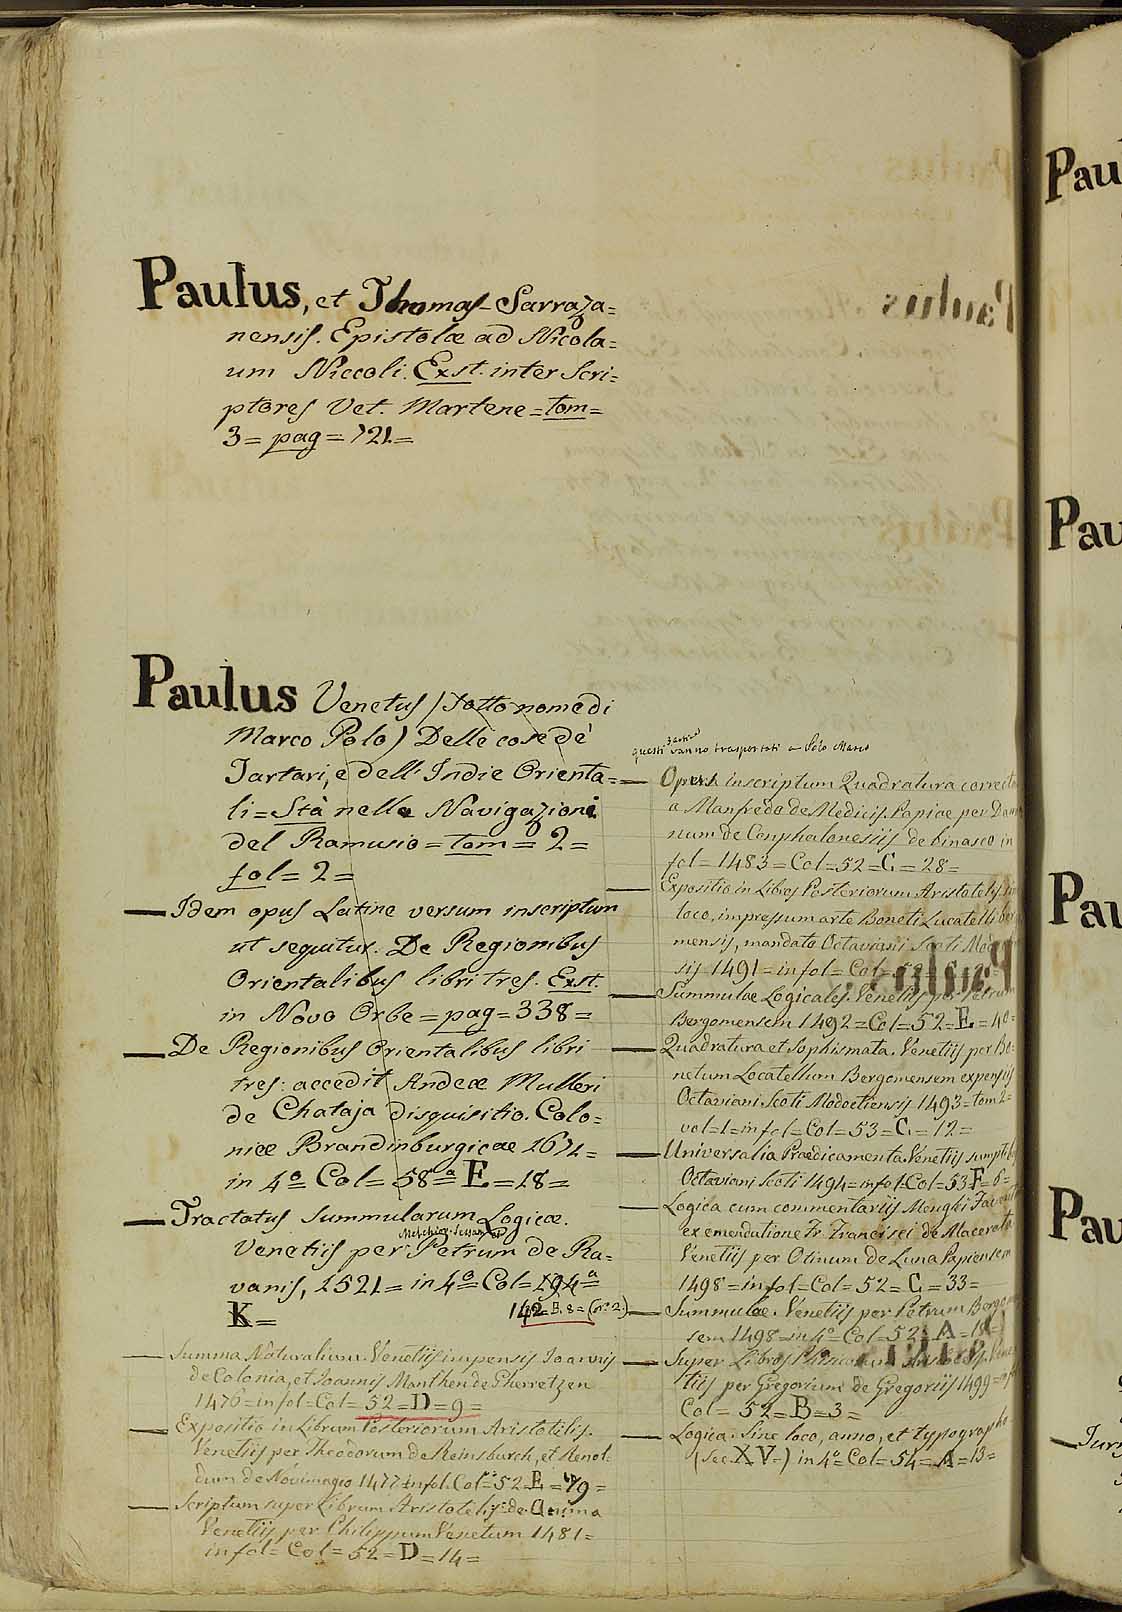 Paulus, et Thomas Sarraza=
nensis. Epistolæ ad Nicola=
um Niccoli. Exst. inter Scri=
ptores Vet. Martene = tom =
3 = pag = 721 =
Paulus Venetus (sotto nome di
Marco Polo) Delle cose de'
Tartari, e dell' Indie Orienta=
li = Stà nelle Navigazioni
del Ramusio = tom = 2 =
fol = 2 =
— Idem opus Latine versum inscriptum
ut sequitur. De Regionibus
Orientalibus libri tres. Exst.
in Novo Orbe = pag = 338 =
— De Regionibus Orientalibus libri
tres: accedit Andeæ Mulleri
de Chataja disquisitio. Colo=
niæ Brandinburgicae 1671 =
in 4º Col = 58ª E = 18 =
— Tractatus Summularum Logicæ.
Venetiis per Petrum de Ra=
vanis, 1521 = in 4º Col = 194ª
K =
142 = B. 8 = (nº 2.)
— Summa Naturalium. Venetiis impensis Joannis
de Colonia, et Joannis Manthen de Gherretzen
1476 = in fol = Col = 52 = D = 9 =
— Expositio in Librum Posteriorum Aristotelis.
Venetiis per Theodorum de Reinsburch, et Renol=
dum de Novimagio 1477 = in fol. Col = 52 E = 19 =
— Scriptum super Librum Aristotelis de Anima
Venetiis per Philippum Venetum 1481 =
in fol = Col = 52 = D = 14 =
questi 3 vanno trasportati a Polo Marco
— Opus inscriptum Quadratura correcta
a Manfredo de Medicis. Papiae per
num de Confalonesiis de binasco in
fol = 1483 = Col = 52 = C = 28 =
— Expositio in Libros Posteriorum Aristotelis
loco, impressum arte Boneti Locatelli
mensis, mandato Octaviani Scoti
sis 1491 = in fol = Col = 52
— Summulae Logicales. Venetiis per Petrum
Bergomensem 1492 = Col = 52 = E = 40 =
— Quadratura et Sophismata. Venetiis per Bo=
netum Locatellum Bergomensem expensis
Octaviani Scoti Modoetiensis 1493 = tom 2 =
vol = 1 = in fol = Col = 53 = C = 12 =
— Universalia Praedicamenta. Venetiis
Octaviani Scoti 1494 = in fol = Col = 53 F = 6 =
— Logica cum commentariis Menghi
ex emendatione Fr. Francisci de Macerata
Venetiis per Otinum de Luna Papiensem
1498 = in fol = Col = 52 = C = 33 =
— Summulae. Venetiis per Petrum
sem 1498 = in 4º Col = 52 A = 18
— Super Libros Phisicorum Aristotelis.
tiis per Gregorium de Gregoriis 1499 =
Col = 52 = B = 3 =
— Logica. Sine loco, anno, et typographo
(sec. XV.) in 4º Col = 54 = A = 13 =
Pau
Pau
Pau
Pau